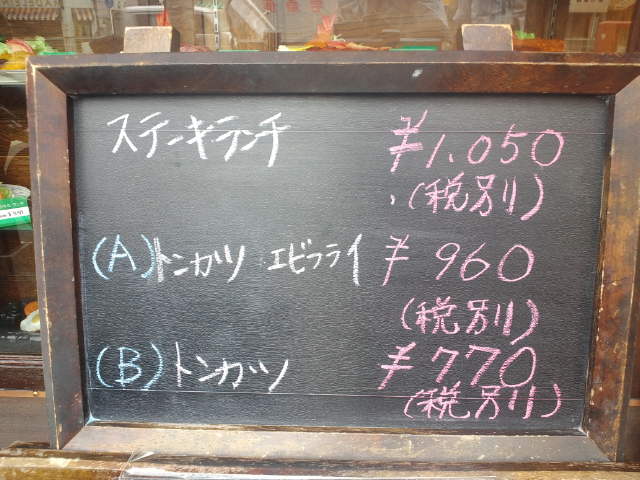 ステーキランチ ¥1.050
(税別)
(A)トンカツ エビフライ ¥960
(税別)
(B)トンカツ ¥770
(税別)